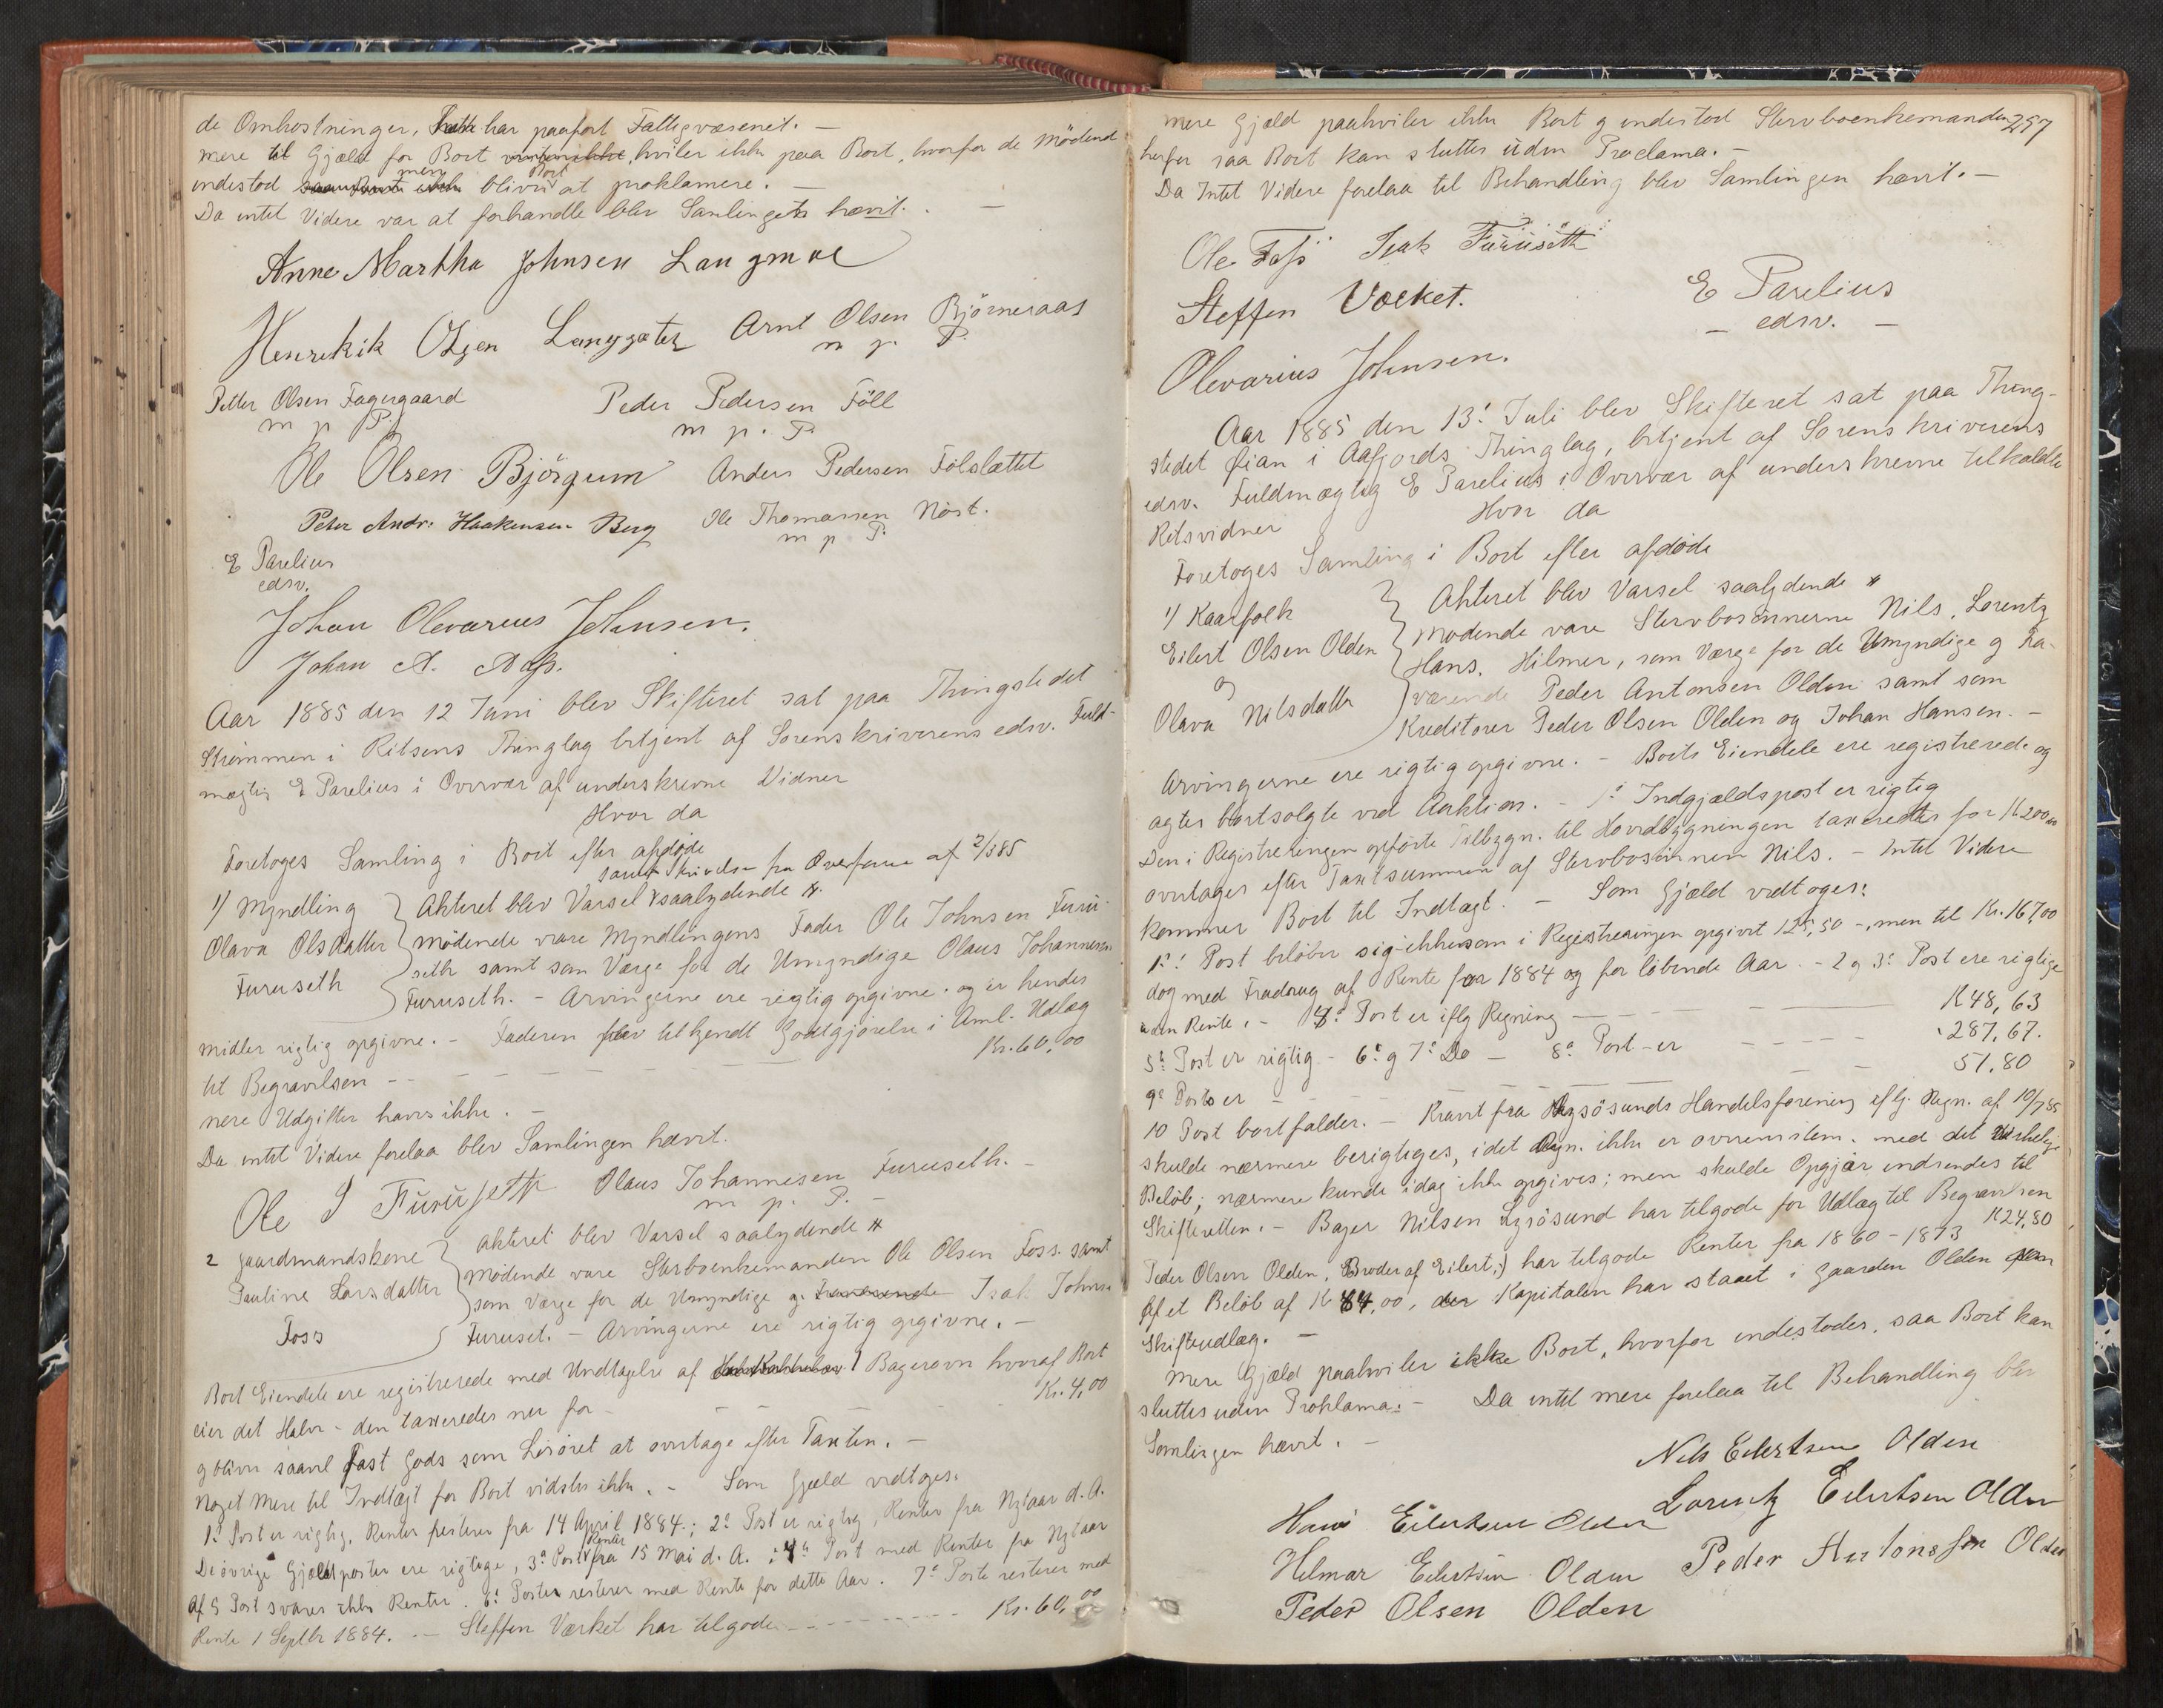 de Omkostninger, har paaført Fattigvæsenet. –
mere til Gjæld for Boet hviler ikke paa Boet, hvorfor de Mødend
indestod men bliver Boet at proklamere. –
Da intet Videre var at forhandle blev Samlingen hævet. –
Anne Martha Johnsen Langmoe
Henrikik Olsen Langsæter Arnt Olsen Bjørneraas
m p. P.
Petter Olsen Fagergaard Peder Pedersen Föll
m p P. m p. P.
Ole Olsen Björgum Anders Pedersen Fölslættet
Peter Andr. Haakensen Berg Ole Thomassen Nöst.
m p P.
E Parelius
edsv.
Johan Olevarius Johnsen.
Johan A. Aas.
Aar 1885 den 12 Juni blev Skifteret sat paa Thingstedet
Strømmen i Ritsens Thinglag betjent af Sorenskriverens edsv. Fuld-
mægtig E Parelius i Overvær af underskrevne Vidner
Hvor da
Foretoges Samling i Boet efter afdøde
samt Skrivelse fra Overform af 2/5 85
1/ Myndling Akteret blev Varsel saalydende #.
Olava Olsdatter mødende vare Myndlingens Fader Ole Johnsen Furu-
Furuseth seth samt som Værge for de Umyndige Olaus Johannesen
Furuseth. – Arvingerne ere rigtig opgivne. og er hendes
midler rigtig opgivne. – Faderen blev tilkjendt Godtgjørelse i Aml. Udlæg
til Begravelsen – – – – Kr. 60,00
mere Udgifter haves ikke. –
Da intet Videre forelaa blev Samlingen hævet.
Ole J Furuseth Olaus Johannesen Furuseth. –
m p. P. –
2 Gaardmandskone Akteret blev Varsel saalydende #
Pauline Larsdatter Mødende vare Sterboenkemanden Ole Olsen Foss. samt
Foss som Værge for de Umyndige og Isak Johns.
Furuset. – Arvingerne ere rigtig opgivne. –
Boet Eiendele ere registrerede med Undtagelse af 1 Bagerovn hvoraf Boet
eier det Halve – den taxeredes nu for – – – Kr. 4,00
g bliver saavel fast Gods som Løsøret at overtage efter Taxten. –
Noget Mere til Indtægt for Boet vidstes ikke. – Som Gjæld vedtoges:
1ste Post er rigtig, Renter resterer fra 14 April 1884.; 2den Post er rigtig, Renter fra Nytaar d. A.
De øvrige Gjældsposter ere rigtige, 3die Post Renter fra 15 Mai d. A.; 4de Post med Renter fra Nytaar
Af 5 Post svares ikke Renter. 6te Posten resterer med Rente for dette Aar. 7de Poste resterer med
Rente 1 Septbr 1884. – Steffen Værket har tilgode – – – Kr. 60,00
257
mere Gjæld paahviler ikke Boet g indestod Stervboenkemanden
herfor saa Boet kan sluttes uden Proclama. –
Da Intet Videre forelaa til Behandling blev Samlingen hævet. –
Ole Foss Isak Furuseth
Steffen Værket. E Parelius
– edsv. –
Olevarius Johnsen.
Aar 1885 den 13de Juli blev Skifteret sat paa Thing-
stedet Øian i Aafjords Thinglag, betjent af Sorenskriverens
edsv. Fuldmægtig E Parelius i Overvær af underskrevne tilkaldte
Retsvidner Hvor da
Foretoges Samling i Boet efter afdøde
1/ Kaarfolk Akteret blev Varsel saalydende #
Eilert Olsen Olden Mødende vare Stervbosønnerne Nils, Lorentz
og Hans, Hilmer, som Værge for de Umyndige g fra-
Olava Nilsdatter værende Peder Antonsen Olden samt som
Kreditorer Peder Olsen Olden og Johan Hansen. –
Arvingerne ere rigtig opgivne. – Boets Eiendele ere registrerede og
agtes bortsolgte ved Auktion. – 1ste Indgjældspost er rigtig
Den i Registreringen opførte Tilbygn. til Hovedbygningen taxeredes for K 200,00
overtages efter Taxtsummen af Stervbosønnen Nils. – Intet Videre
kommer Boet til Indtægt. – Som Gjæld vedtoges:
1ste Post beløber sig ikke som i Registreringen opgivet 125,50 –, men til Kr. 167,00
dog med Fradrag af Rente for 1884 og for løbende Aar. – 2 g 3die Post ere rigtige
uden Rente. – 4de Post er iflg Regning – – K 48,63
5te Post er rigtig – 6te g 7de Do – 8de Post – er – – " 287,67.
9de Post er – – – 51,80
10 Post bortfalder. – Kravet fra Lysøsunds Handelsforening iflg. Regn. af 10/7 85
skulde nærmere berigtiges, idet Regn. ikke er overensstem. med det virkelige
Beløb; nærmere kunde idag ikke opgives; men skulde Opgjør indsendes til
Skifteretten. – Bager Nilsen Lysøsund har tilgode for Udlæg til Begravelsen K 24,80
Peder Olsen Olden, (Broder af Eilert,) har tilgode Renter fra 1860 – 1873
af et Beløb af K 84,00, der Kapitalen har staaet i Gaarden Olden
Skifteudlæg. –
Mere Gjæld paahviler ikke Boet, hvorfor indestodes, saa Boet kan
sluttes uden Proklama: – Da intet mere forelaa til Behandling blev
Samlingen hævet. –
Nils Eilertsen Olden
Hans Eilertsen Olden Lorentz Eilertsen Olden
Helmar Eilertsen Olden Peder Antonssen Olden
Peder Olsen Olden